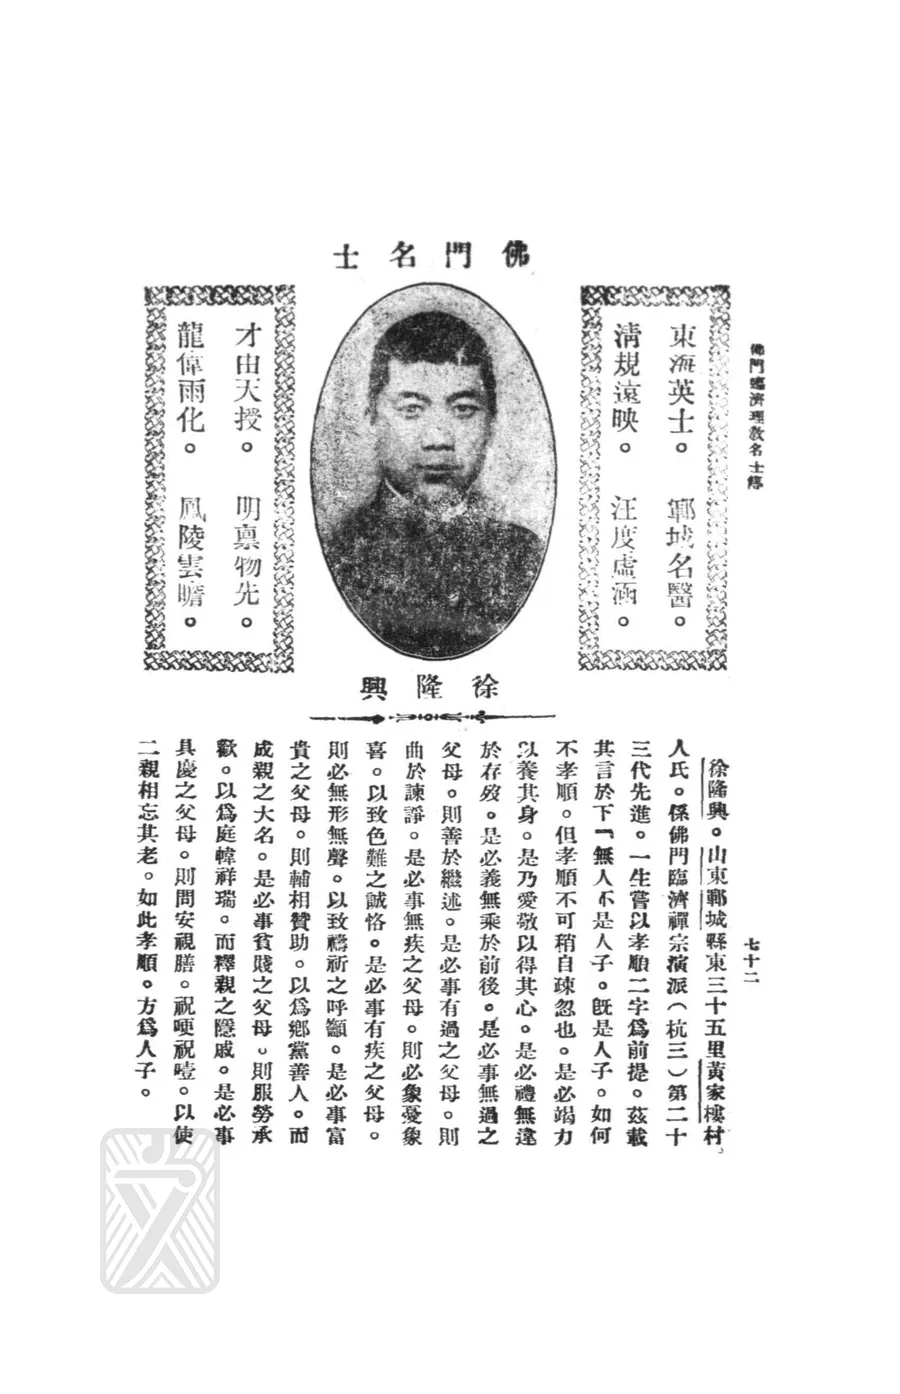 佛門臨濟理教名士傳
佛門名士
東海英士。鄆城名醫。
清規遠映。汪度虛涵。
才由天授。明禀物先。
龍偉雨化。鳳陵雲瞻。
徐隆興
徐隆興。山東鄆城縣東三十五里黃家樓村
人氏。係佛門臨濟禪宗演派（杭三）第二十
三代先進。一生嘗以孝順二字爲前提。茲載
其言於下「無人不是人子。旣是人子。如何
不孝順。但孝順不可稍自疎忽也。是必竭力
以養其身。是乃愛敬以得其心。是必禮無違
於存歿。是必義無乘於前後。是必事無過之
父母。則善於繼述。是必事有過之父母。則
曲於諫諍。是必事無疾之父母。則必象憂象
喜。以致色難之誠恪。是必事有疾之父母。
則必無形無聲。以致禱祈之呼籲。是必事富
貴之父母。則輔相贊助。以爲鄉黨善人。而
成親之大名。是必事貧賤之父母。則服勞承
歡。以爲庭幃祥瑞。而釋親之隱戚。是必事
具慶之父母。則問安視膳。祝哽祝噎。以使
二親相忘其老。如此孝順。方爲人子。
七十二